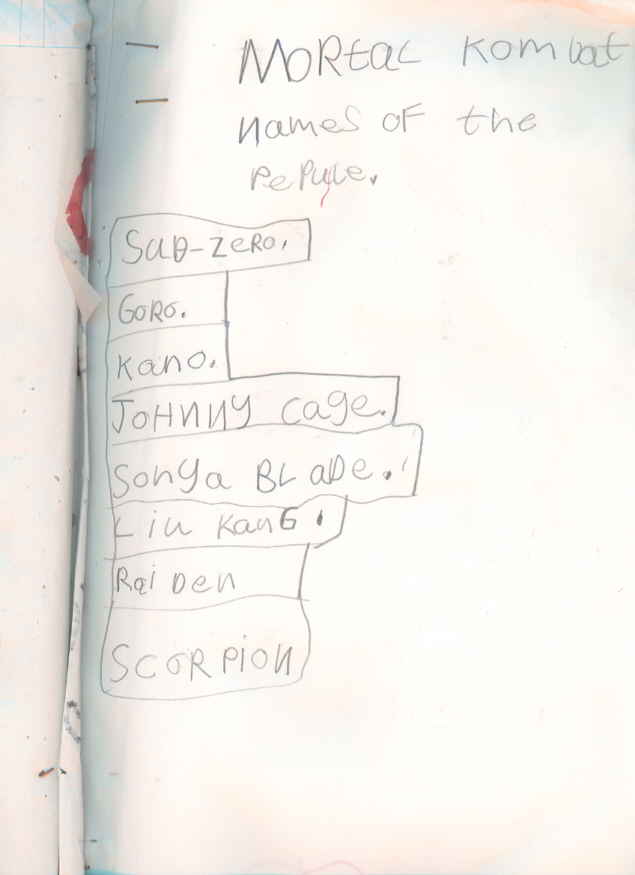 MORtaL Kombat
names of the
PePule.
SuB-ZeRo.
GoRo.
Kano.
JoHNNY Cage.
Sonya BLaDe.
Liu KanG.
Rai Den
SCORPiON